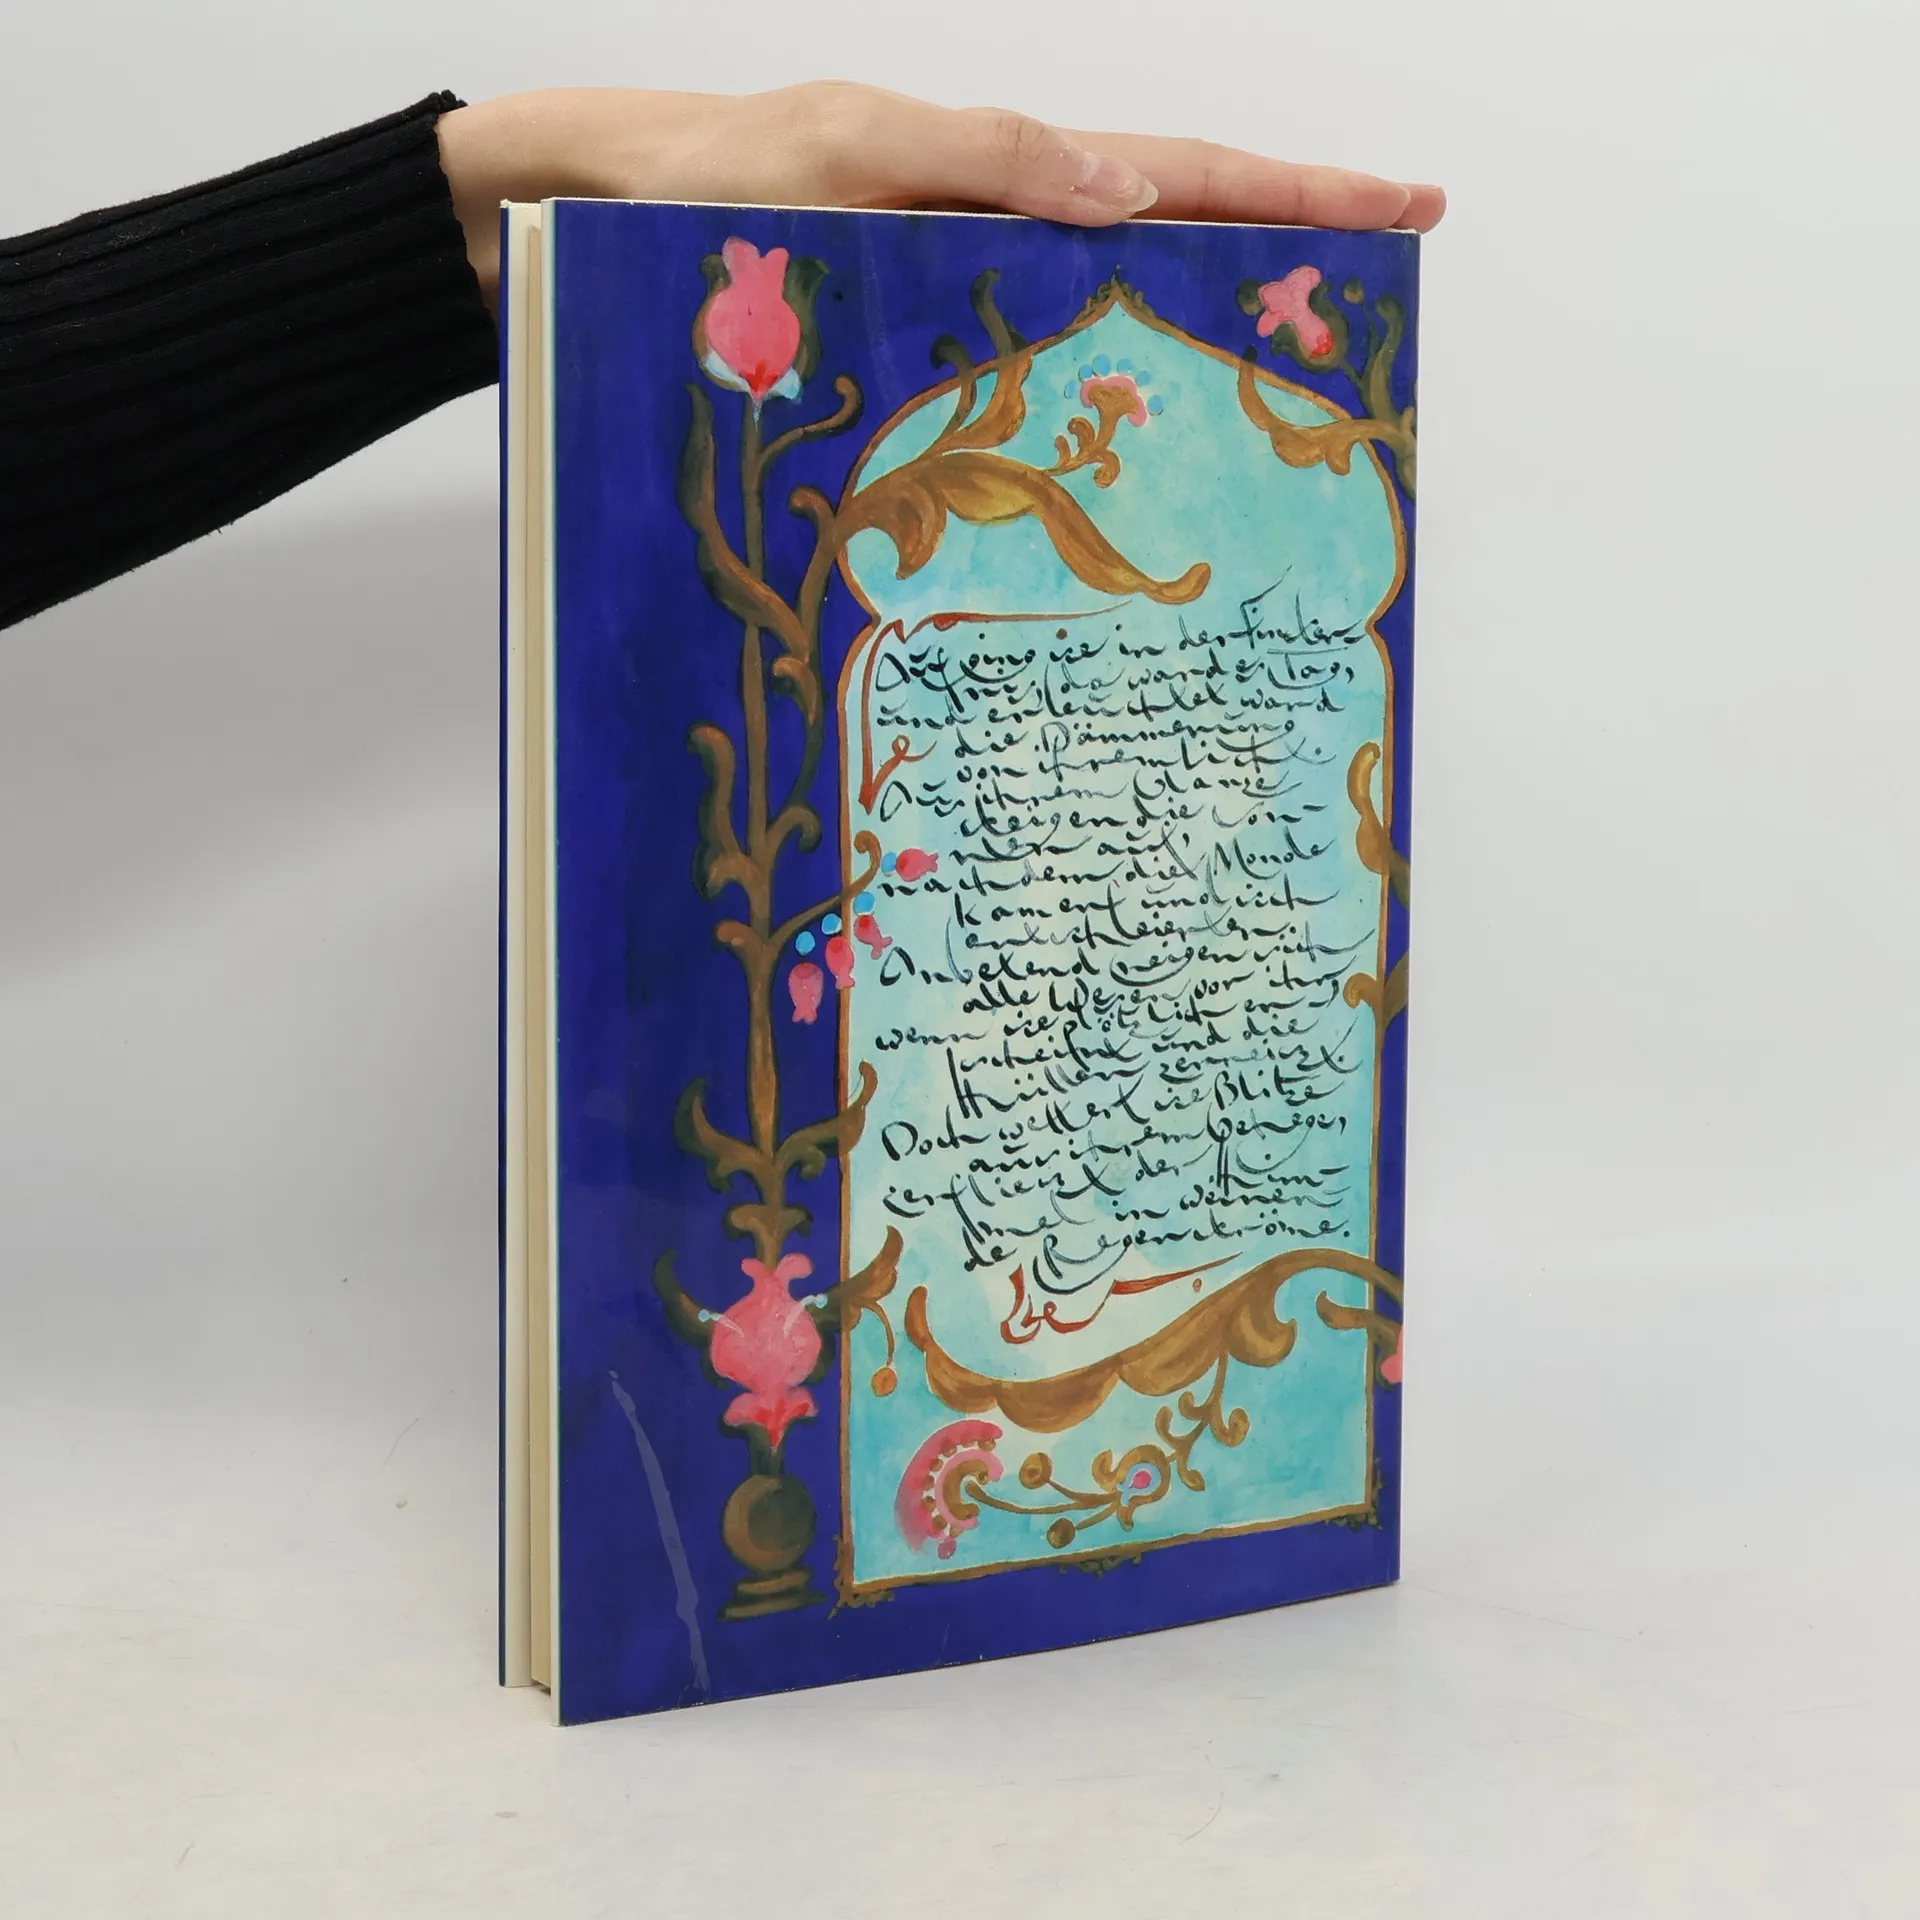 Auf ging sie in der Finster-
nis, da ward es Tag,
und erleuchtet ward
die Dämmerung
von ihrem Licht.
Aus ihrem Glanze
steigen die Son-
nen auf,
nachdem die Monde
kamen und sich
entschleierten.
Anbetend neigen sich
alle Wesen vor ihr,
wenn sie plötzlich er-
scheint und die
Hüllen zerreiszt.
Doch wettert sie Blitze
aus ihrem Gehege,
zerflieszt der Him-
mel in weinen-
de Regenströme.